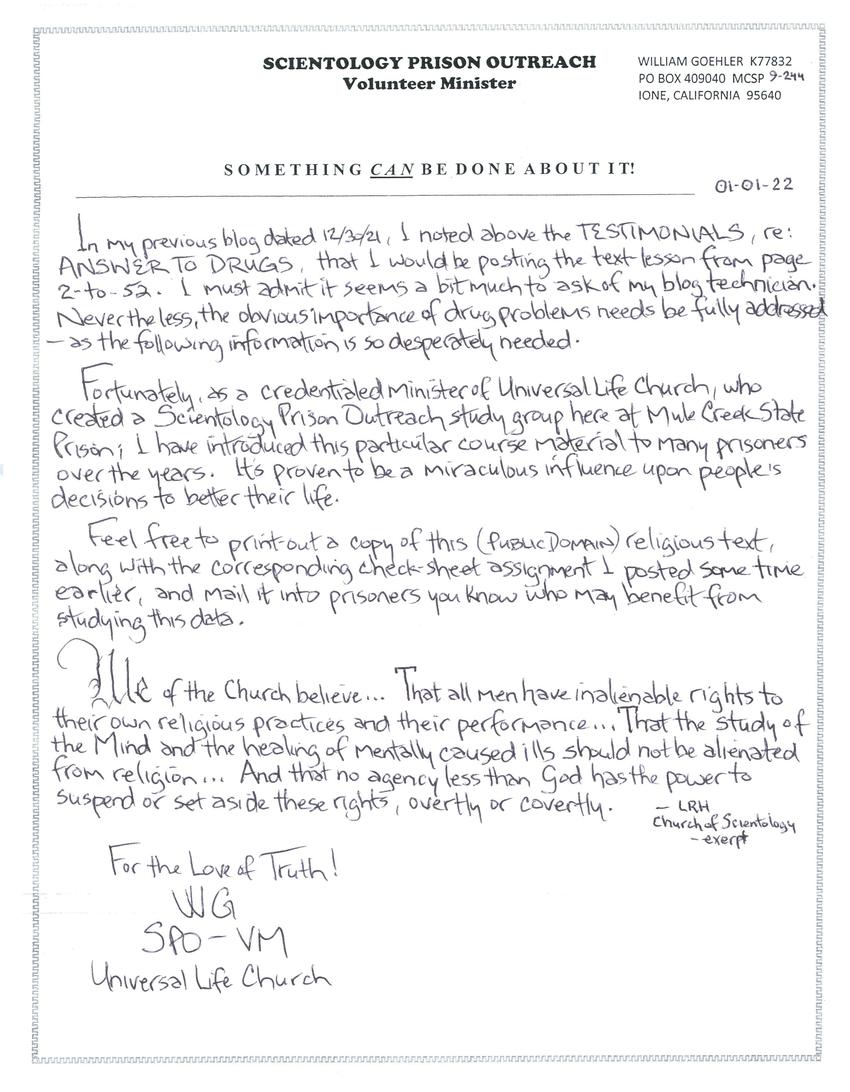 SCIENTOLOGY PRISON OUTREACH
Volunteer Minister
WILLIAM GOEHLER K77832
PO BOX 409040 MCSP 9-244
IONE, CALIFORNIA 95640
SOMETHING CAN BE DONE ABOUT IT!
01-01-22
In my previous blog dated 12/30/21, I noted above the TESTIMONIALS, re:
ANSWER TO DRUGS, that I would be posting the text lesson from page
2-to-52. I must admit it seems a bit much to ask of my blog technician.
Nevertheless, the obvious importance of drug problems needs be fully addressed
– as the following information is so desperately needed.
Fortunately, as a credentialed Minister of Universal Life Church, who
created a Scientology Prison Outreach study group here at Mule Creek State
Prison; I have introduced this particular course material to many prisoners
over the years. It's proven to be a miraculous influence upon people's
decisions to better their life.
Feel free to print-out a copy of this (PUBLIC DOMAIN) religious text,
along with the corresponding check-sheet assignment I posted some time
earlier, and mail it into prisoners you know who may benefit from
studying this data.
We of the Church believe... That all men have inalienable rights to
their own religious practices and their performance... That the study of
the Mind and the healing of mentally caused ills should not be alienated
from religion... And that no agency less than God has the power to
suspend or set aside these rights, overtly or covertly.
– LRH
Church of Scientology
– exerpt
For the Love of Truth!
WG
SPO – VM
Universal Life Church